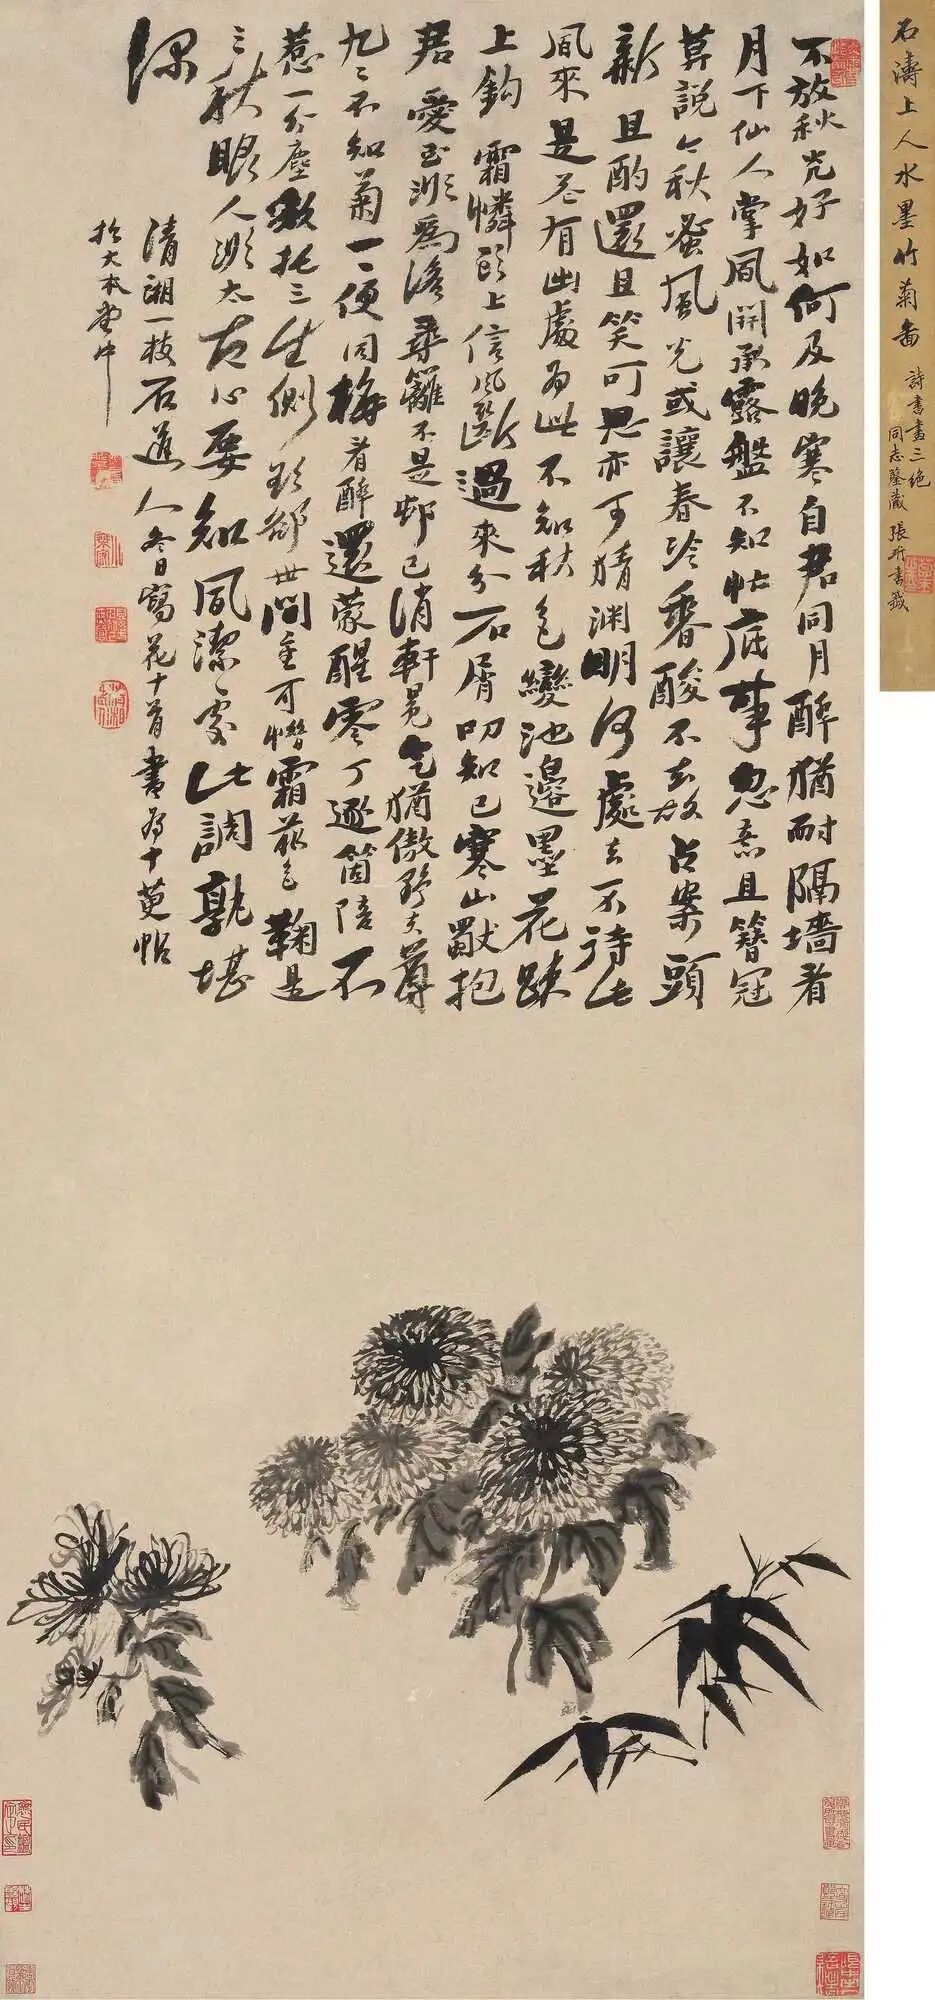 不放秋光好如何及晚寒自君同月醉猶耐隔墻看
月下仙人掌風開承露盤不知忙底事忽意且簪冠
莫說今秋蚤風光或讓春冷香酸不去故占案頭
新且酌還且笑可思亦可猜淵明何處去不待此
風來是花有幽處為此不知秋色變池邊墨花
上鈎霜憐頭上信風斷過來分石屑叩知己寒山獻抱
君愛玉澌為澹尋籬不是邨已消軒冕氣猶傲野夫尊
九九不知菊一一便同梅看醉還蒙醒零丁逐箇陪不
惹一分塵敢托三生側欹卻世間重可憎霜菲色鞠是
三秋眼人澌太古心要知風潔處此調孰堪
深
清湘一枝石道人冬日寫花十首書為十萸帖
於大本堂中
石濤上人水墨竹菊圖
詩書畫三绝
同志鑒藏 張珩書籤